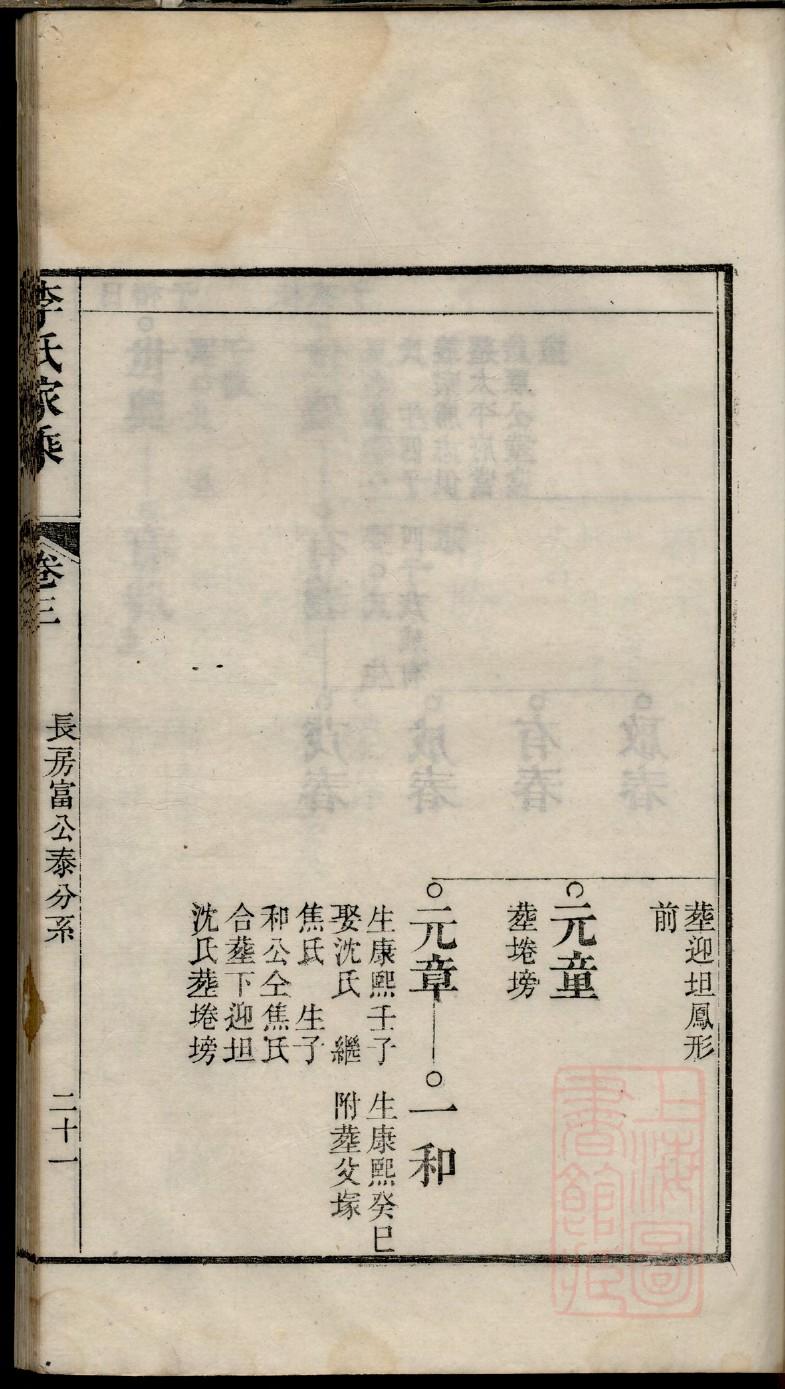 葬迎坦鳳形
前
元童
葬埢塝
元章
生康熙壬子
娶沈氏 繼
焦氏 生子
和公仝焦氏
合葬下迎坦
沈氏葬埢塝
一和
生康熙癸巳
附葬父塚
李氏家乘
卷三
長房富公泰分系
二十一
上海圖
書館藏